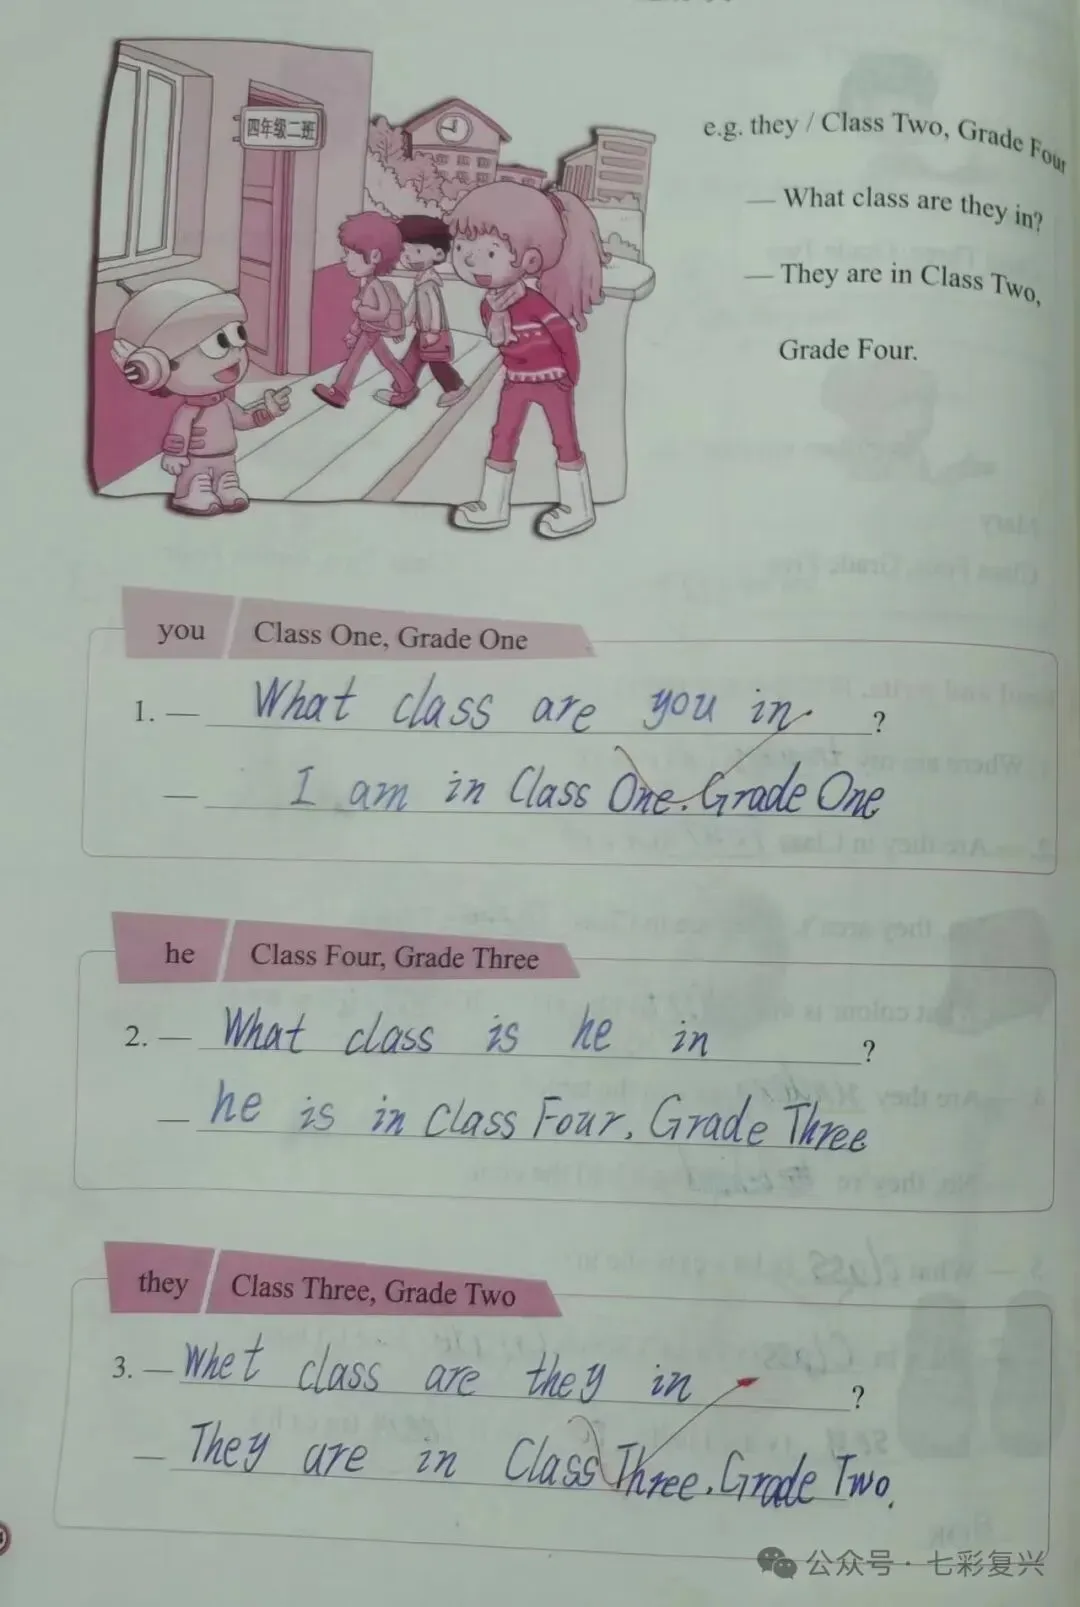 四年级二班
e.g. they / Class Two, Grade Four
— What class are they in?
— They are in Class Two,
Grade Four.
you Class One, Grade One
1. — What class are you in ?
— I am in Class One. Grade One
he Class Four, Grade Three
2. — What class is he in ?
— he is in Class Four, Grade Three
they Class Three, Grade Two
3. — Whet class are they in ?
— They are in Class Three. Grade Two.
公众号·七彩复兴